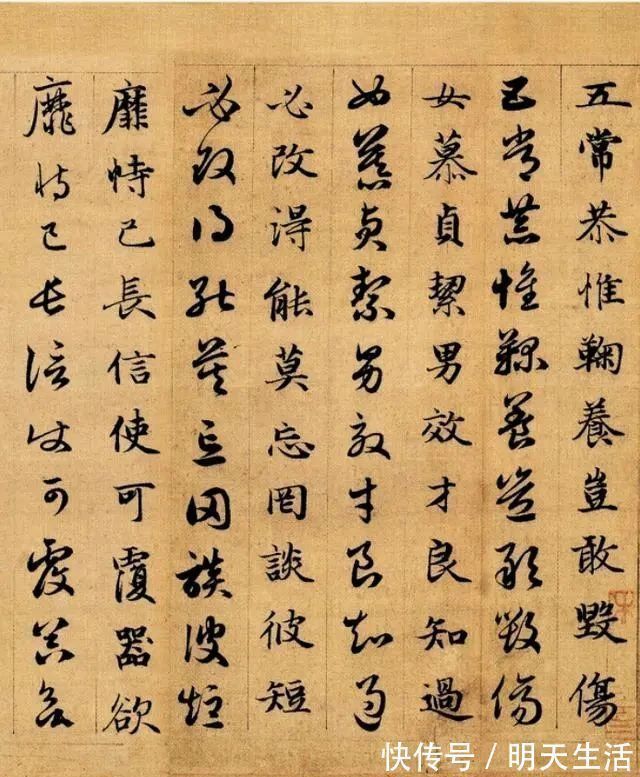 五常恭惟鞠養豈敢毀傷
五常恭惟鞠養豈敢毀傷
女慕貞絜男效才良知過
女慕貞絜男效才良知過
必改得能莫忘罔談彼短
必改得能莫忘罔談彼短
靡恃己長信使可覆器欲
靡恃己長信使可覆器欲
快传号 / 明天生活